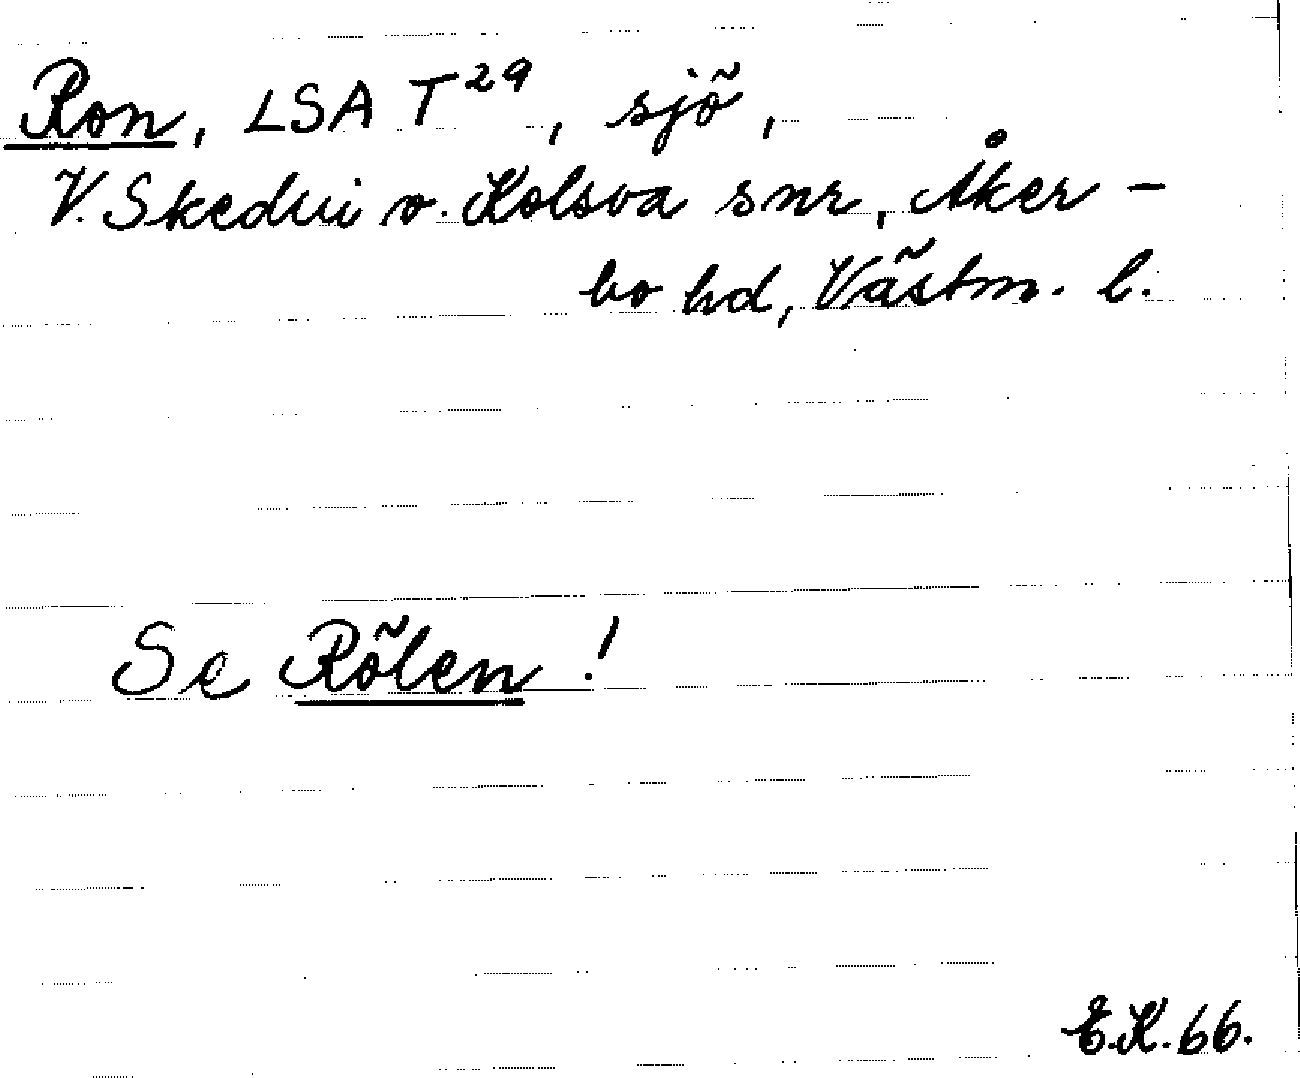 Ron, LSA T²⁹, sjö,
V. Skedvi o. Kolsva snr, Åker-
bo hd, Västm. l.
Se Rölen!
E.K. 66.